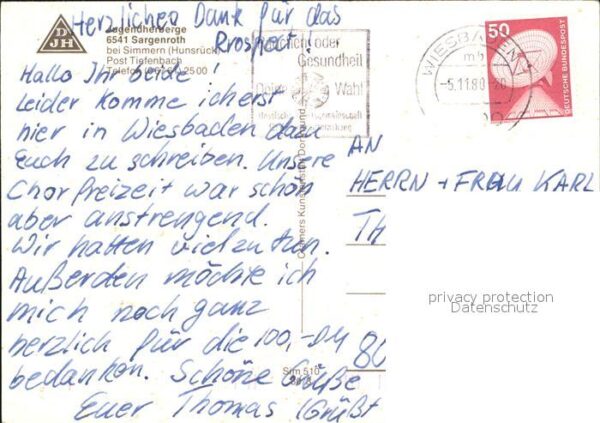 Herzlichen Dank für das
Prospekt!
DJH
Jugendherberge
6541 Sargenroth
bei Simmern (Hunsrück)
Post Tiefenbach
Telefon 2500
Hallo Ihr beide!
Leider komme ich erst
hier in Wiesbaden dazu
Euch zu schreiben. Unsere
Chorfreizeit war schön
aber anstrengend.
Wir hatten viel zu tun.
Außerdem möchte ich
mich noch ganz
herzlich für die 100,-DM
bedanken. Schöne Grüße
Euer Thomas (Grüßt
oder
Gesundheit
Deine Wahl
WIESBADEN 1
mb
-5.11.80-20
50
DEUTSCHE BUNDESPOST
Cramers Kunstanstalt Dortmund
Sim 510
AN
HERRN + FRAU KARL
TH
80
privacy protection
Datenschutz